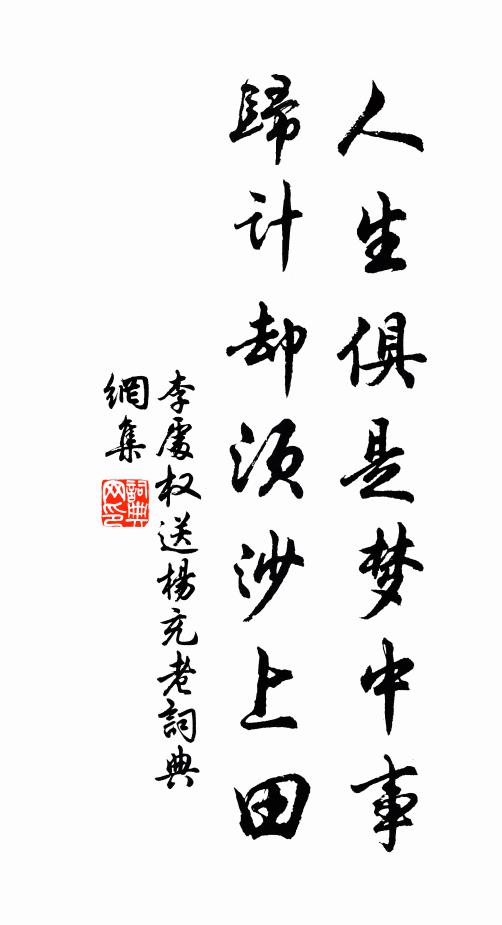 人生俱是梦中事
歸计却须沙上田
李處权送楊充老詞典
網集
詞典
网印